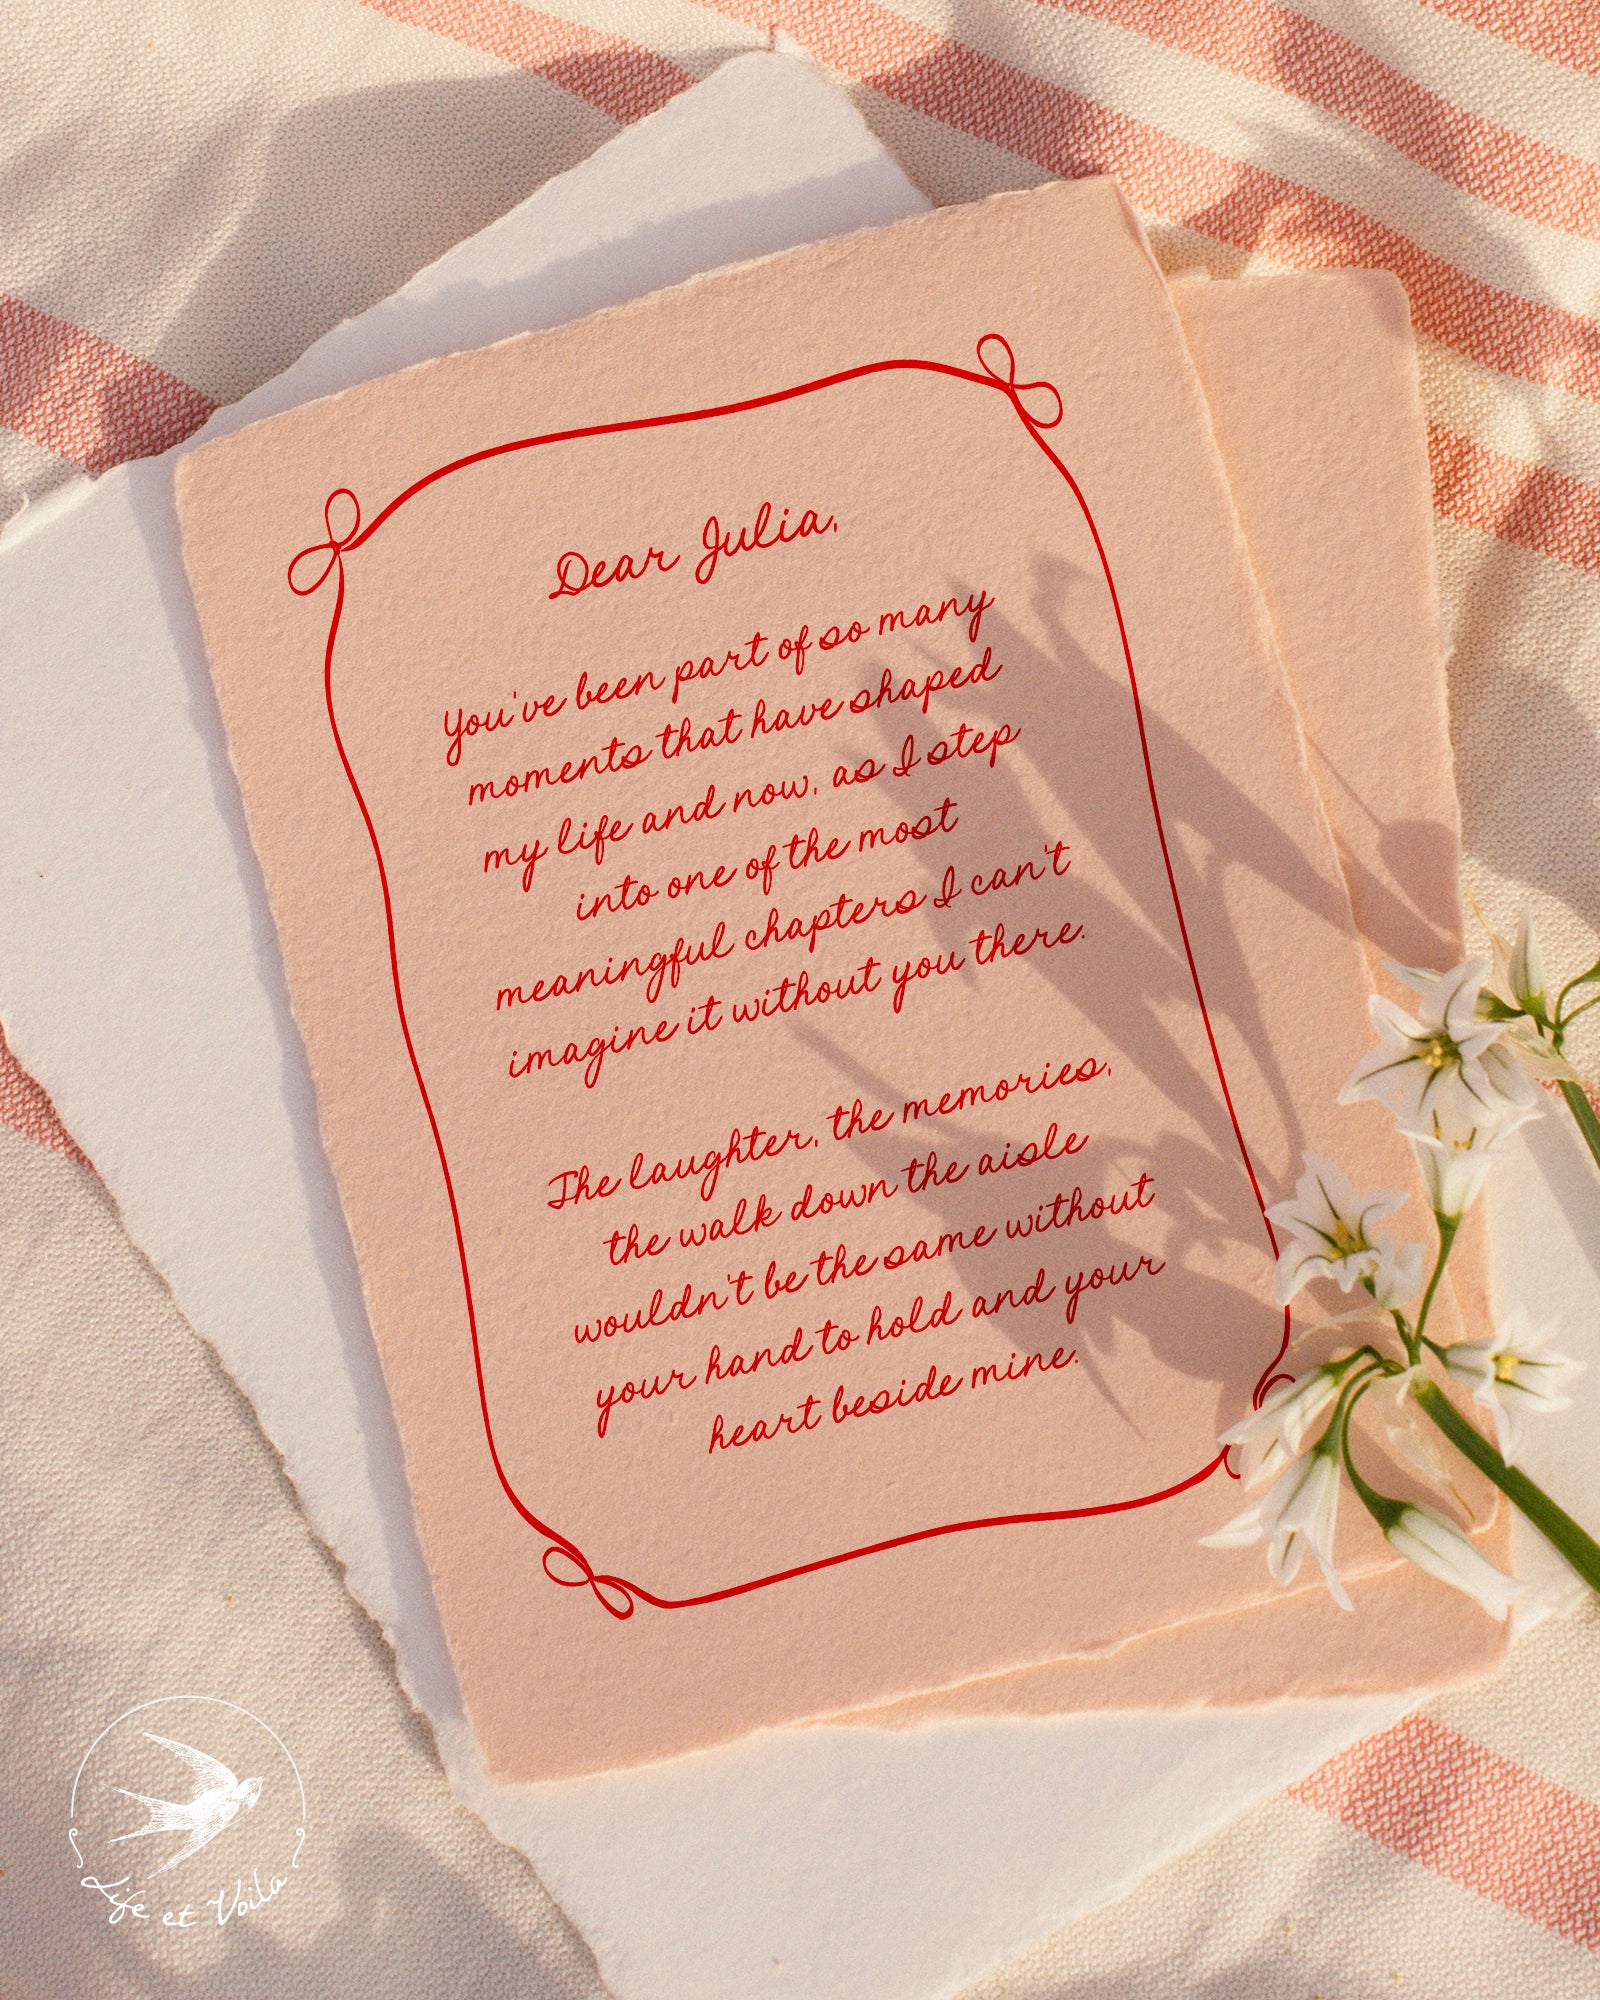 Dear Julia,
You've been part of so many
moments that have shaped
my life and now, as I step
into one of the most
meaningful chapters I can't
imagine it without you there.
The laughter, the memories,
the walk down the aisle
wouldn't be the same without
your hand to hold and your
heart beside mine.
Life et Voila